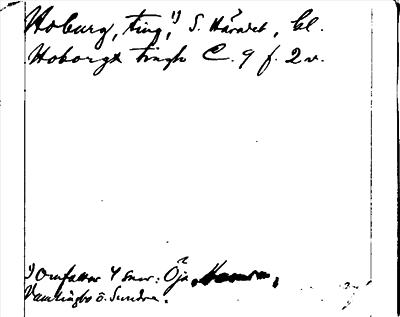 Hoburg, ting,¹) S. Häradet, Gl.
Hoborgx tingh C. 9 f. 2 v.
¹) Omfattar 4 snar: Öja, Hamra,
Vamlingbo o. Sundre.